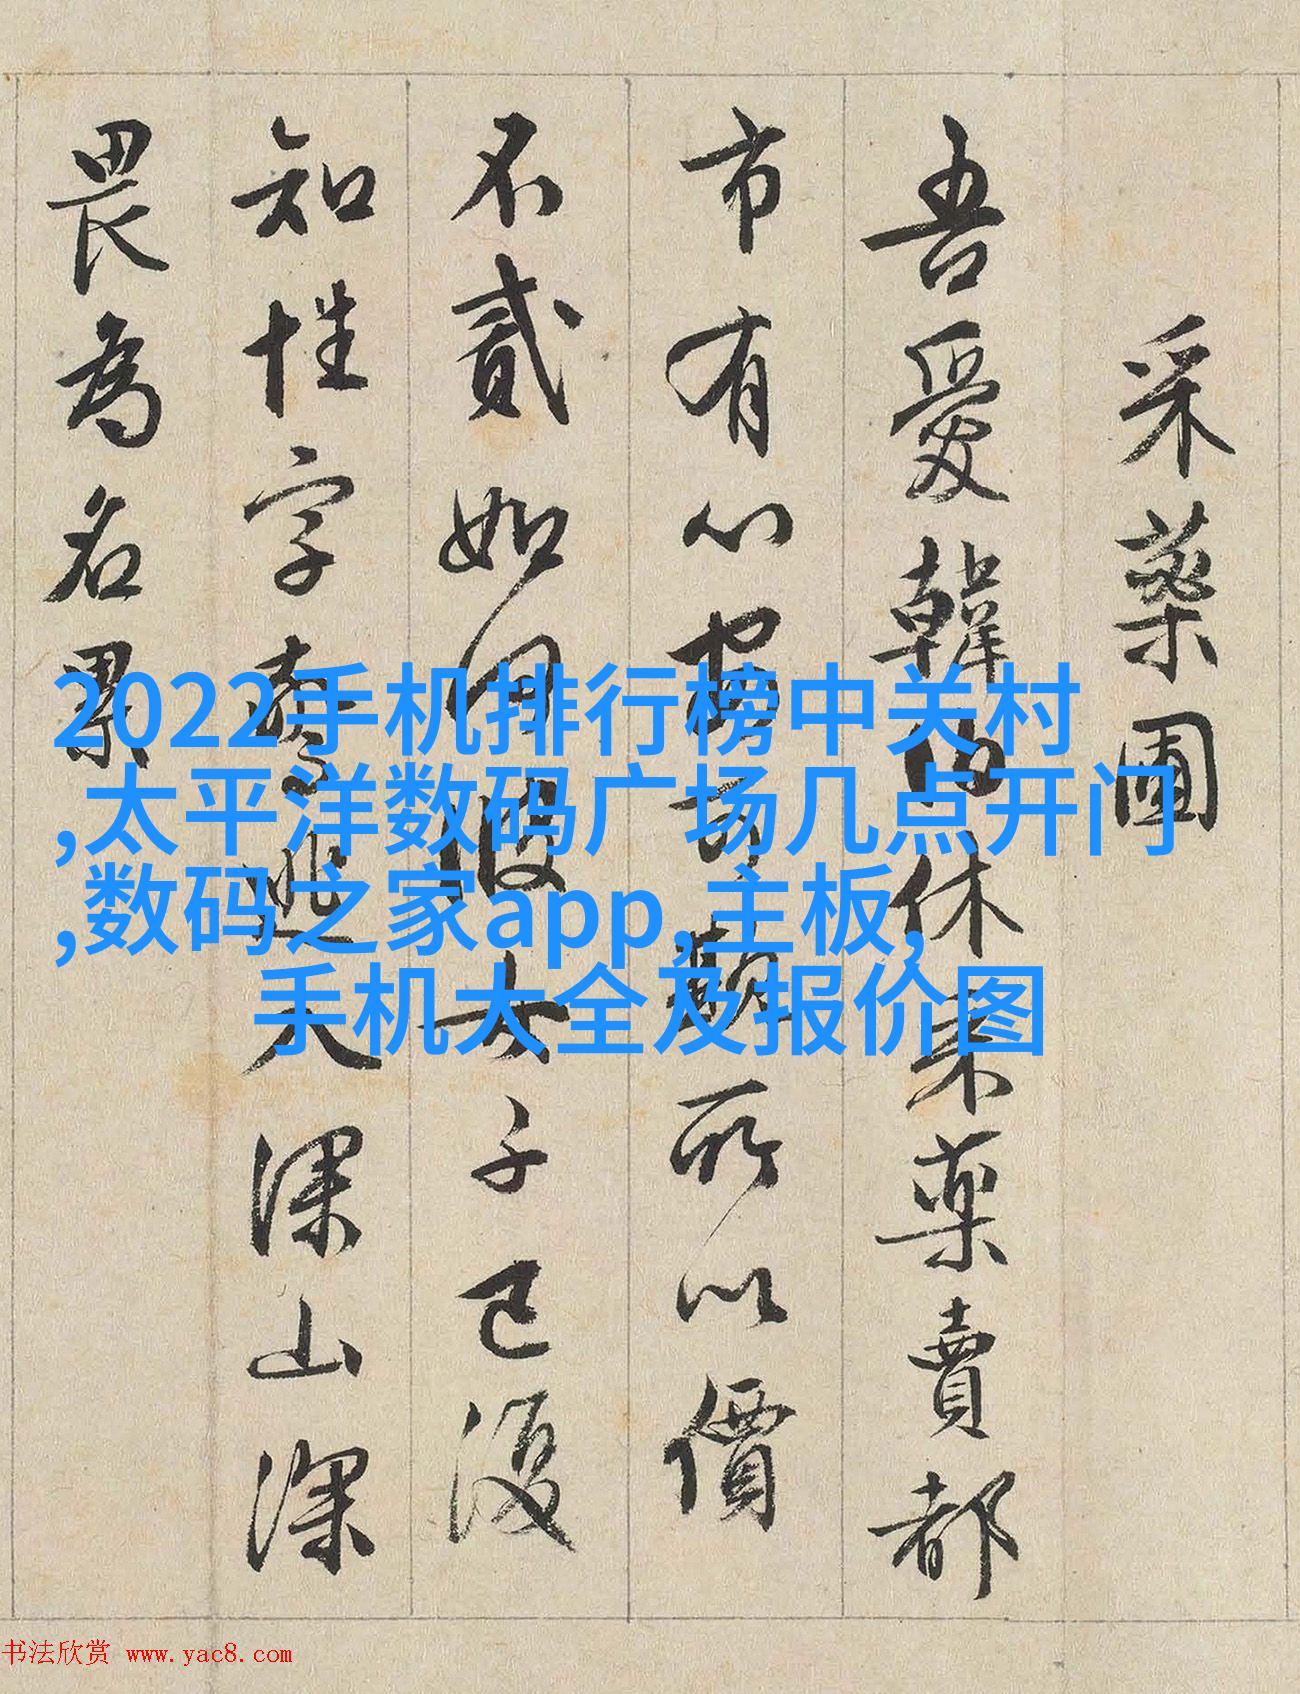 采藥圃
吾愛韓伯休采藥賣都
市有心安可所以價
不貳如何彼女子已復
知姓字驚逃入深山深
畏為名累
2022手机排行榜中关村
,太平洋数码广场几点开门
,数码之家app,主板,
手机大全及报价图
书法欣赏 www.yac8.com